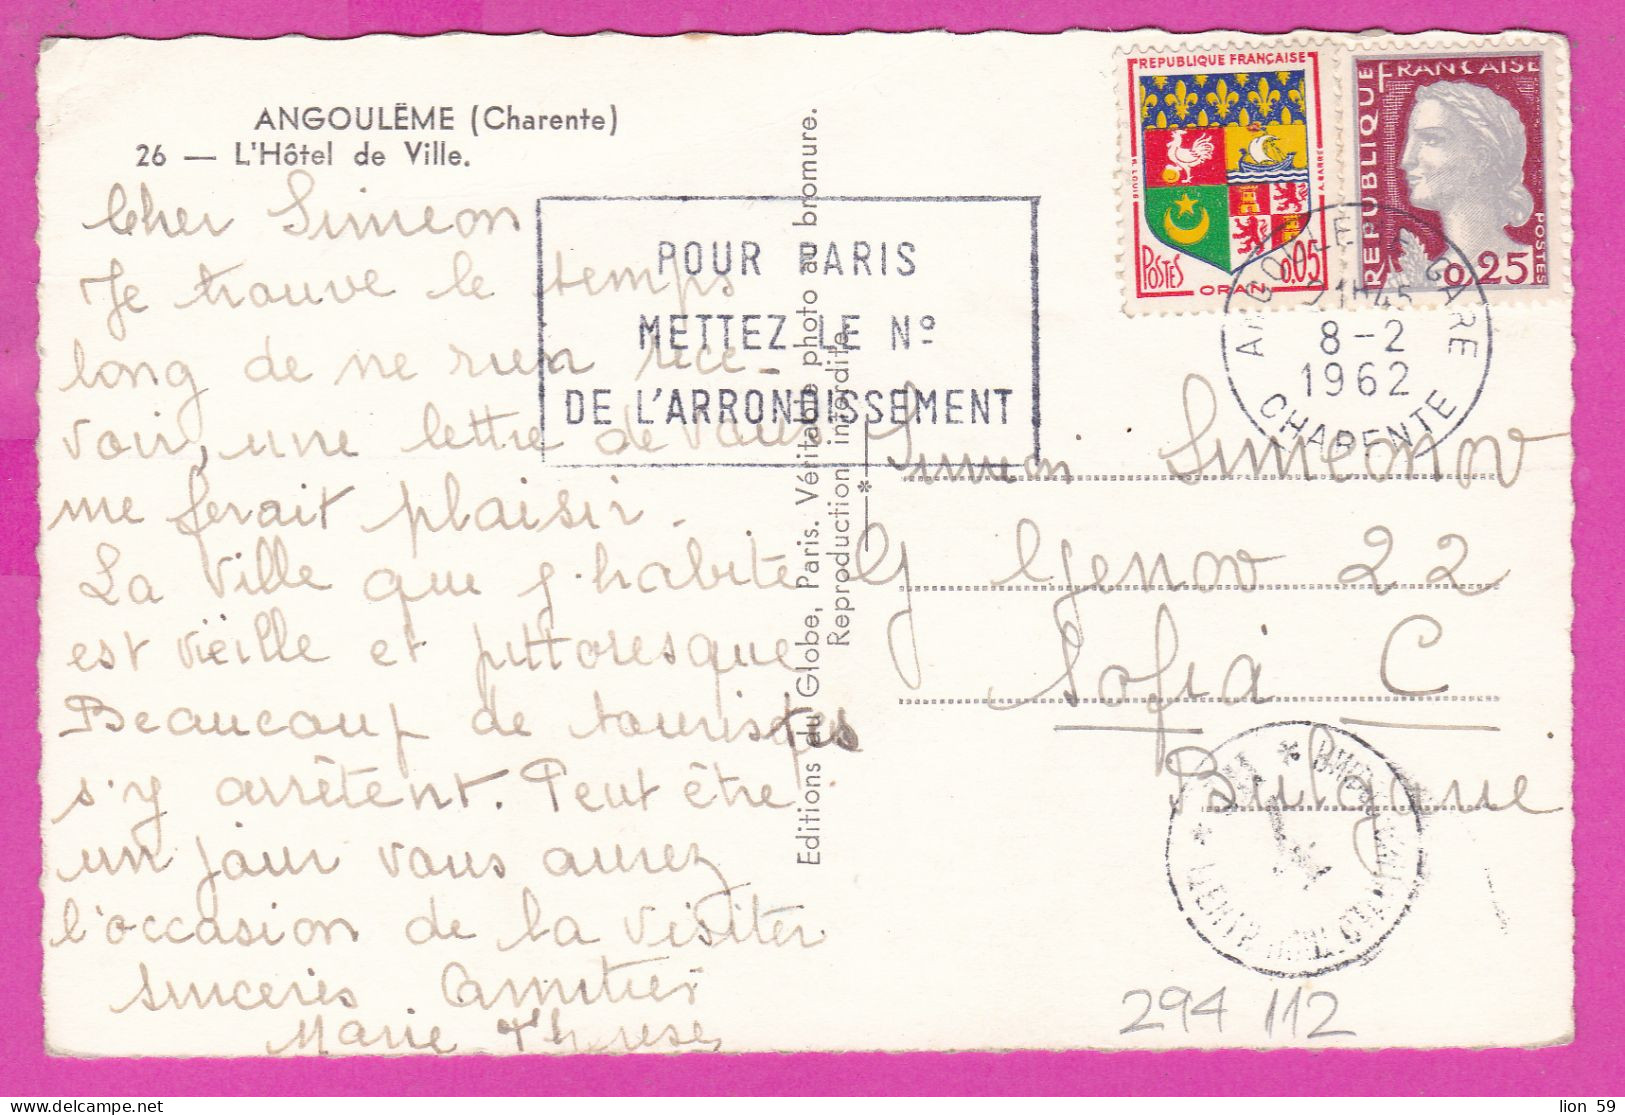 ANGOULÊME (Charente)
26 — L'Hôtel de Ville.
Cher Simeon
Je trouve le temps
long de ne rien rece-
voir, une lettre de vous
me ferait plaisir.
La Ville que j'habite
est vieille et pittoresque
Beaucoup de touristes
s'y arrêtent. Peut être
un jour vous aurez
l'occasion de la visiter
sincères Amitiés
Marie Therese
POUR PARIS
METTEZ LE Nº
DE L'ARRONDISSEMENT
Editions du Globe, Paris. Véritable photo au bromure.
Reproduction interdite.
REPUBLIQUE FRANÇAISE
POSTES
ORAN
0.05
REPUBLIQUE FRANCAISE
POSTES
0,25
ANGOULEME GARE
21H45
8-2
1962
CHARENTE
Simon Simeonov
G Genov 22
Sofia C
Bulgarie
294 112
lion 59